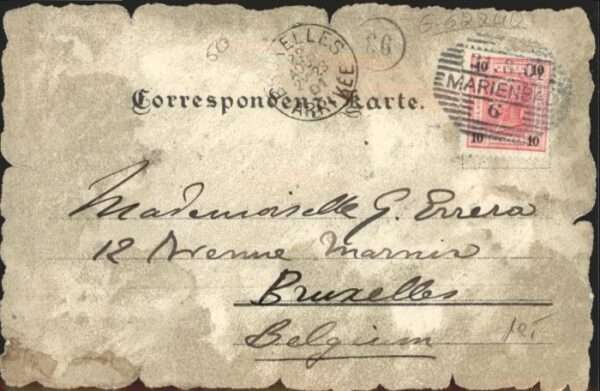 G. 62240
50
BRUXELLES
ARRIVEE
Correspondenz-Karte.
10 10
MARIENB
6
10 10
Mademoiselle G. Errera
12 Avenue Marnix
Bruxelles
Belgium